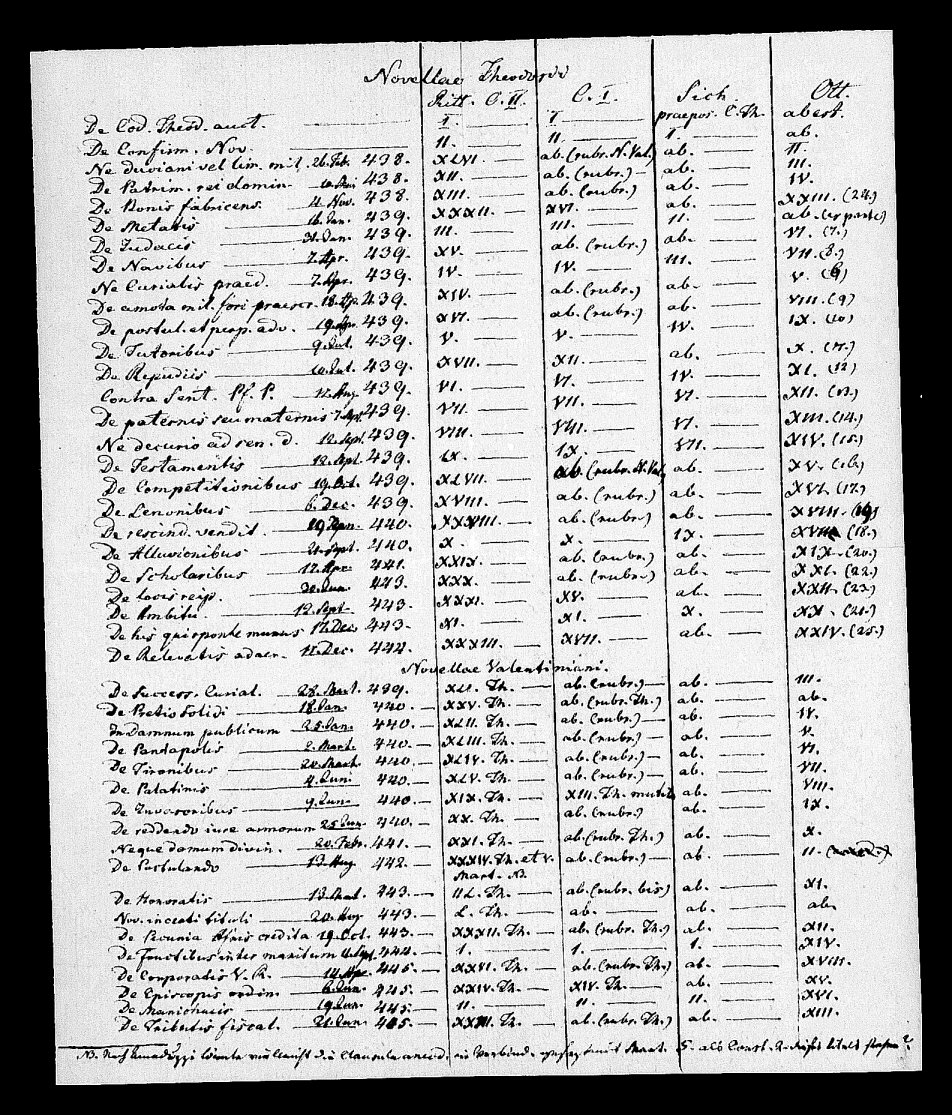 Novellae Theodosii
Ritt. C. II. C. I. Sich. Ott.
De Cod. Theod. auct. I. I praepos. C. Th. aberst.
De Confirm. Nov. II. II 1. ab.
Ne duciani vel lim. mil. 26. Feb. 438. XLVI. ab. (rubr. N. Val.) ab. II.
De Patrim. rei domin. 438. XII. ab. (rubr.) ab. III.
De Bonis fabricens. 4. Nov. 438. XIII. ab. (rubr.) ab. IV.
De Metatis Jan. 439. XXXII. XVI. ab. XXIII. (24.)
De Judaeis 31. Jan. 439. III. III. II. ab.
De Navibus 7. Apr. 439. XV. ab. (rubr.) ab. VI. (7.)
Ne Curialis praed. 7. Apr. 439. IV. IV. III. VII. (8.)
De amota mil. fori praescr. 439. XIV. ab. (rubr.) ab. V. (6)
De postul. et 439. XVI. ab. (rubr.) ab. VIII. (9)
De Tutoribus 9. Jul. 439. V. V. IV. IX. (10)
De Repudiis 10. Jul. 439. XVII. XII. ab. X. (11.)
Contra Sent. Pf. P. Aug 439. VI. VI. XI. (12)
De paternis seu maternis 7. Sept. 439. VII. VII. VI. XII. (13.)
Ne decurio ad sen. d. Sept. 439. VIII. VIII. VI. XIII. (14.)
De Testamentis 12. Sept. 439. IX. IX. VII. XIV. (15.)
De Competitionibus 19. Oct. 439. XLVII. ab. (rubr. N. Val. ab. XV. (16.)
De Lenonibus 6. Dec. 439. XVIII. ab. (rubr.) ab. XVI. (17.)
De rescind. vendit. 440. XXVIII. ab. (rubr.) ab. XVIII. (19)
De Alluvionibus 21. Sept. 440. X. X. IX. (18.)
De Scholaribus Apr. 441. XXIX. ab. (rubr.) ab. XIX. (20.)
De locis reip. Jun. 443. XXX. ab. (rubr.) ab. XXI. (22.)
De Ambitu. 12. Sept. 443. XXXI. XV. ab. XXII. (23.)
De his qui sponte munus 17. Dec. 443. XI. XI. X. XX. (21.)
De Relevatis adaer. 11. Dec. 444. XXXIII. XVII. ab. XXIV. (25.)
Novellae Valentiniani.
De Success. Curial. 439. XLI. Th. ab. (rubr.) ab. III.
De Pretio Solidi 18. Jan. 440. XXV. Th. ab. (rubr. Th.) ab. ab.
In Damnum publicum 25. Jan. 440. XLII. Th. ab. (rubr.) ab. IV.
De Pantapolis 2. Mart. 440. XLIII. Th. ab. (rubr.) ab. V.
De Tironibus 20. Mart. 440. XLIV. Th. ab. (rubr.) ab. VI.
De Palatinis 4. Juni 440. XLV. Th. ab. (rubr.) ab. VII.
De Invasoribus 9. Jun. 440. XIX. Th. XIII. Th. ab. VIII.
De reddendo iure armorum 25. Jun. 440. XX. Th. ab. (rubr.) ab. IX.
Neque domum divin. 20. Febr. 441. XXI. Th. ab. (rubr. Th.) ab. X.
De Postulando 13. Aug 442. XXXIV. Th. et V. ab. (rubr.) ab. II.
Mart. N.
De Honoratis 13. Mart. 443. IIL. Th. ab. (rubr. bis) ab. XI.
Nov. incerti tituli 443. L. Th. ab. ab. ab.
De Pecunia Afris credita 19. Oct. 443. XXXII. Th. ab. (rubr. Th.) ab. XII.
De fructibus inter maritum Sept. 444. 1. 1. 1. XIV.
De Corporatis V. R. Apr. 445. XXVI. Th. ab. (rubr. Th.) ab. XVIII.
De Episcopis ordin. 8. Jun. 445. XXIV. Th. XIV. Th. ab. XV.
De Manichaeis 19. Jun. 445. II. II. II. XVI.
De Tributis fiscal. 21. Jun. 445. Th. ab. (rubr. Th.) ab. XIII.